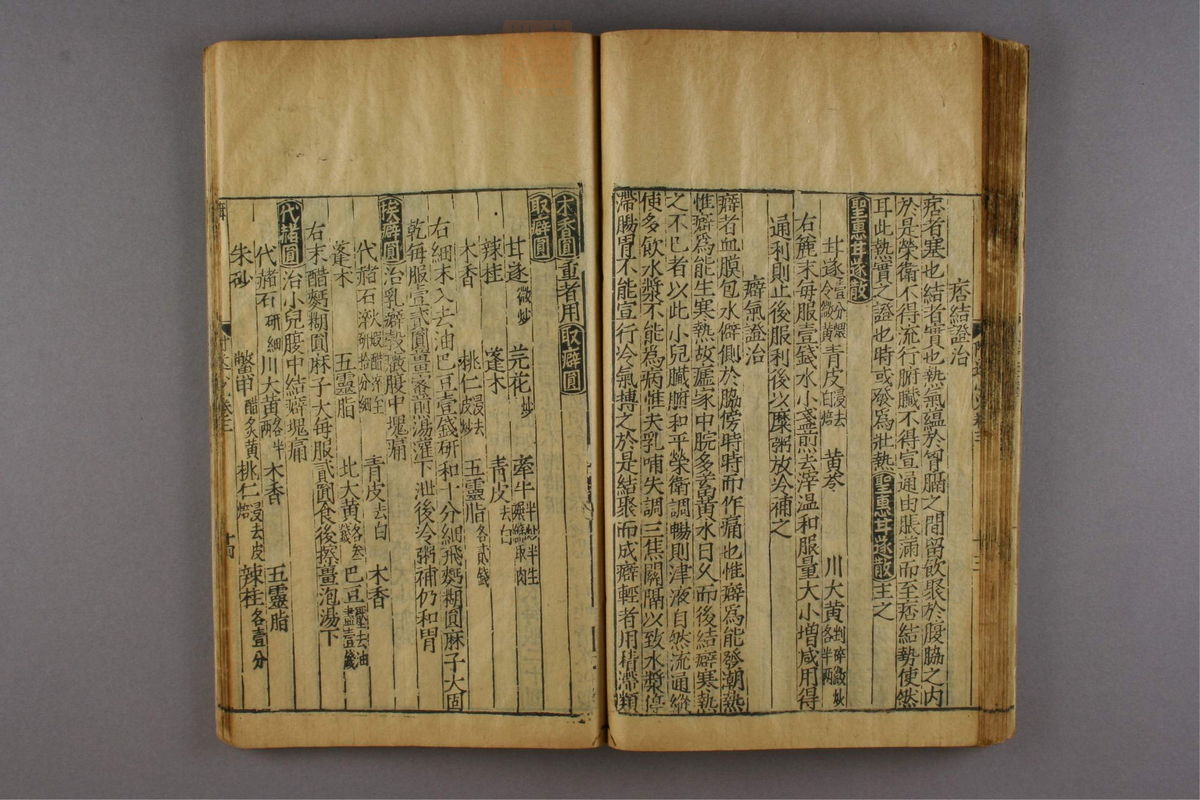 痞結證治
痞者塞也結者實也熱氣蘊於胷膈之間留飲聚於腹脇之内
於是榮衛不得流行腑臟不得宣通由脹滿而至痞結勢使然
耳此熱實之證也時或發爲壯熱聖惠甘遂散主之
聖惠甘遂散
甘遂壹分煨令微黄 青皮浸去白焙 黄芩 川大黄剉碎微炒各半两
右麄末每服壹錢水小盞煎去滓温和服量大小增减用得
通利則止後服利後以糜粥放冷補之
癖氣證治
癖者血膜包水僻側於脇傍時時而作痛也惟癖爲能發潮熱
惟癖爲能生寒熱故瘧家中脘多蓄黄水日久而後結癖寒熱
之不已者以此小兒臟腑和平榮衛調暢則津液自然流通縱
使多飲水漿不能為病惟夫乳哺失調三焦關隔以致水漿停
滯腸胃不能宣行冷氣搏之於是結聚而成癖輕者用精滯類
木香圓重者用取癖圓
取癖圓
甘遂微炒 芫花炒 牽牛半炒半生碾細取肉
辣桂 蓬木 青皮去白
木香 桃仁浸去皮炒 五靈脂各貳錢
右細末入去油巴豆壹錢研和十分細飛麪糊圓麻子大固
乾每服壹貳圓薑蜜煎湯灌下泄後冷粥補仍和胃
挨癖圓治乳癖穀癥腹中塊痛
代赭石火煅醋淬至漸研拾分細 青皮去白 木香
蓬木 五靈脂 北大黄各叁錢 巴豆壓去油盡壹錢
右末醋麪糊圓麻子大每服貳圓食後擦薑泡湯下
代赭圓治小兒腹中結癖塊痛
代赭石研細 川大黄各半两 木香 五靈脂
朱砂 鱉甲醋炙黄 桃仁浸去皮焙 辣桂各壹分